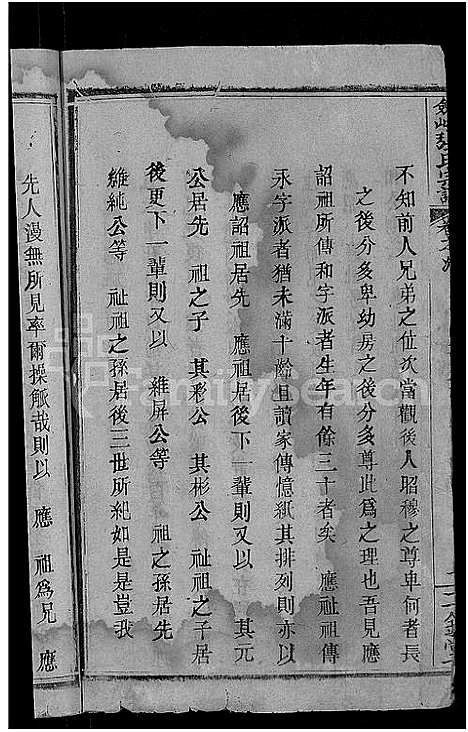 不知前人兄弟之位次當觀後人昭穆之尊卑何者長
之後分多卑幼房之後分多尊此爲之理也吾見應
詔祖所傳和字派者生年有餘三十者矣 應祉祖傳
永字派者猶未滿十齡且讀家傳憶紙其排列則亦以
應詔祖居先 應祖居後下一輩則又以 其元
公居先 祖之子 其彩公 其彬公 祉祖之子居
後更下一輩則又以 維屏公等 祖之孫居先
維純公等 祉祖之孫居後三世所紀如是是豈我
先人漫無所見率爾操觚哉則以 應 祖爲兄 應
FamilySearch